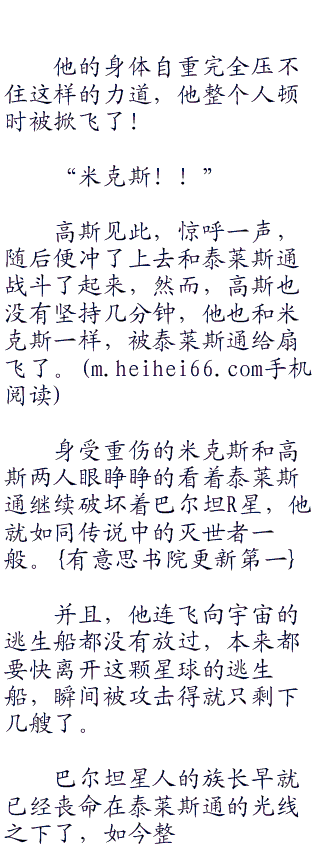 他的身体自重完全压不
住这样的力道，他整个人顿
时被掀飞了！
“米克斯！！”
高斯见此，惊呼一声，
随后便冲了上去和泰莱斯通
战斗了起来，然而，高斯也
没有坚持几分钟，他也和米
克斯一样，被泰莱斯通给扇
飞了。(m.heihei66.com手机
阅读)
身受重伤的米克斯和高
斯两人眼睁睁的看着泰莱斯
通继续破坏着巴尔坦R星，他
就如同传说中的灭世者一
般。{有意思书院更新第一}
并且，他连飞向宇宙的
逃生船都没有放过，本来都
要快离开这颗星球的逃生
船，瞬间被攻击得就只剩下
几艘了。
巴尔坦星人的族长早就
已经丧命在泰莱斯通的光线
之下了，如今整